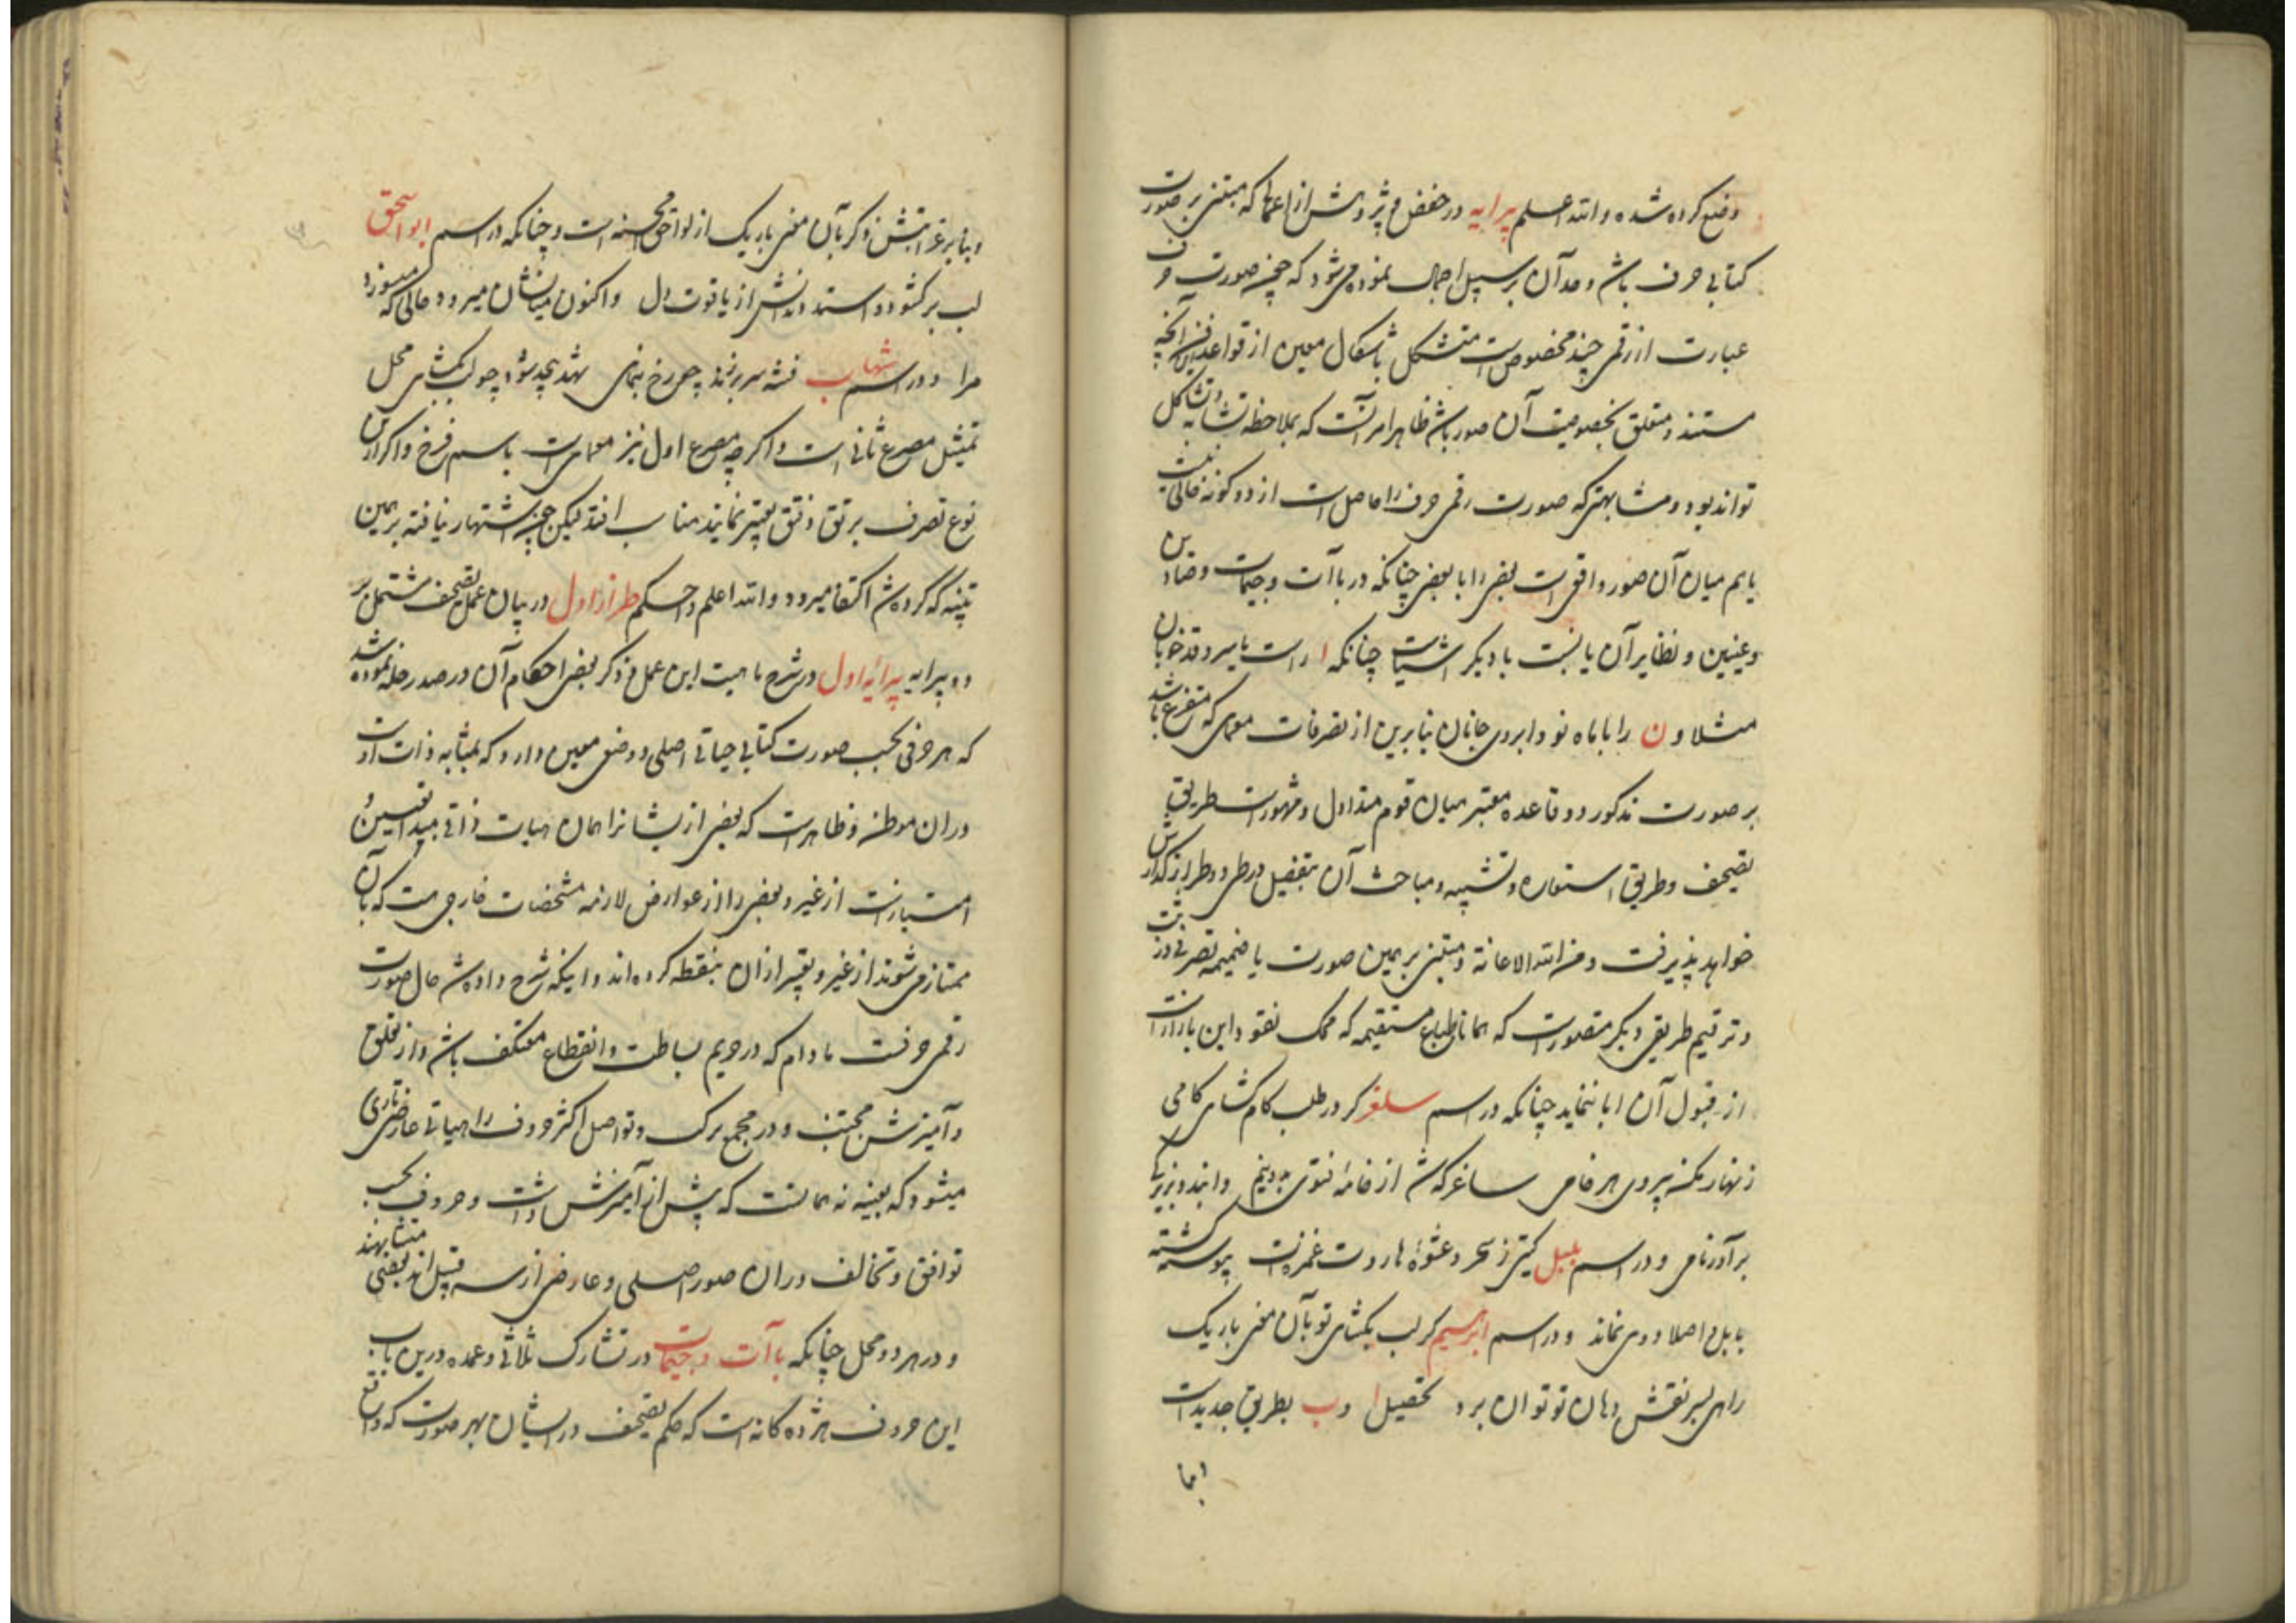 وضع کرده شده والله اعلم پیرایه در خفض و پژوهش از اعمال که مبتنی بر صورت
کتابی حرف باشد و بعد آن بر سبیل اجمال نموده می شود که چون صورت حرف
عبارت از رقمی چند مخصوص است متشکل باشکال معین از قواعد این فن آنچه
مستند و متعلق بخصوصیت آن صور باشد ظاهرا مرآنست که بملاحظه تشابه و تشاکل
تواند بود و مشابهتی که صورت رقمی حرف را حاصل است از دو گونه خالی نیست
یا هم میان آن صور واقع است بعضی را با بعضی چنانکه در باآت و جیمات و صادین
و عینین و نظایر آن یا نسبت با دیگر اشیاست چنانکه ا راست با سرو قد خوبان
مثلا و ن را با ماه نو و ابروی جانان بنابرین از تصرفات معمای که متفرع باشد
بر صورت مذکور دو قاعده معتبر میان قوم متداول و مشهورست طریق
تصحیف و طریق استعاره و تشبیه و مباحث آن بتفصیل در طی دو طراز گذارش
خواهد پذیرفت و من الله الاعانة و مبتنی بر همین صورت یا ضمیمه تصرفی در
و ترقیم طریقی دیگر متصورست که همانا طباع مستقیمه که محک نقود این بازارانست
از قبول آن ابا ننماید چنانکه در اسم سلغر کر در طلب کام کشای کامی
زنهار مکن پیروی هر خامی ساغر کش از خامه فتوی
بر آور نامی و در اسم بلبل گیتی ز سحر و عشوه هاروت غمزه ات پیوسته گشته
بابل و اصلا دوی نماند و در اسم ابرسیم کر لب بکشای تو بآن معنی باریک
راهی بسر نقش دهان تو توان برد تحصیل ا و ب بطریق جدیدست
اما
و بنا بر غرابتش ذکر بآن معنی باریک از لواحق محسنه است و چنانکه در اسم ابو اسحق
لب بر گشود و استد دندانش از یاقوت دل و اکنون میانشان میرود حالی که میسوزد
مرا و در اسم شهاب فتنه سر برزند چو رخ بنمای شهد بیحد شود چو لب بکشای محل
تمثیل مصرع ثانی است و اگرچه مصرع اول نیز معمای است باسم فرخ و اگر از این
نوع تصرف برتق و فتق تعبیر نمایند مناسب افتد لیکن چون اشتهار نیافته بر همین
تنبیه که کرده شد اکتفا میرود و الله اعلم و احکم طراز اول در بیان عمل تصحیف مشتمل بر
دو پیرایه پیرایه اول در شرح ماهیت این عمل و ذکر بعضی احکام آن در صدر حله نموده شد
که هر حرفی بحسب صورت کتابی هیاتی اصلی و وضعی معین دارد که بمثابه ذات اوست
در ان موطن و ظاهرست که بعضی از ایشانرا همان هیات ذاتی مبدا تعین و
امتیازست از غیر و بعضی را از عوارض لازمه مشخصات خارجی هست که بآن
ممتاز می شوند از غیر و تعبیر از ان بنقطه کرده اند و اینکه شرح داده شد حال صورت
رقمی حرفست مادام که در حریم بساطت و انقطاع معتکف باشد و از تعلق
و آمیزش مجتنب و در مجمع ترکب و تواصل اکثر حروف را هیاتی عارضی تاری
میشود که بعینه نه همانست که پیش از آمیزش داشت و حروف بحسب
توافق و تخالف در ان صور اصلی و عارضی از سه قبیل اند بعضی متشابهند
و در هر دو محل چنانکه باآت و جیمات در تشارک ثلاثی و عمده درین باب
این حروف هژده گانه است که حکم تصحیف در ایشان بهر صورت که واقع